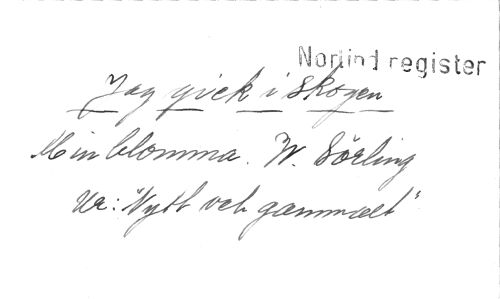 Norlind register
Jag gick i skogen
Min blomma. W. Sörling
Ur: "Nytt och gammalt"